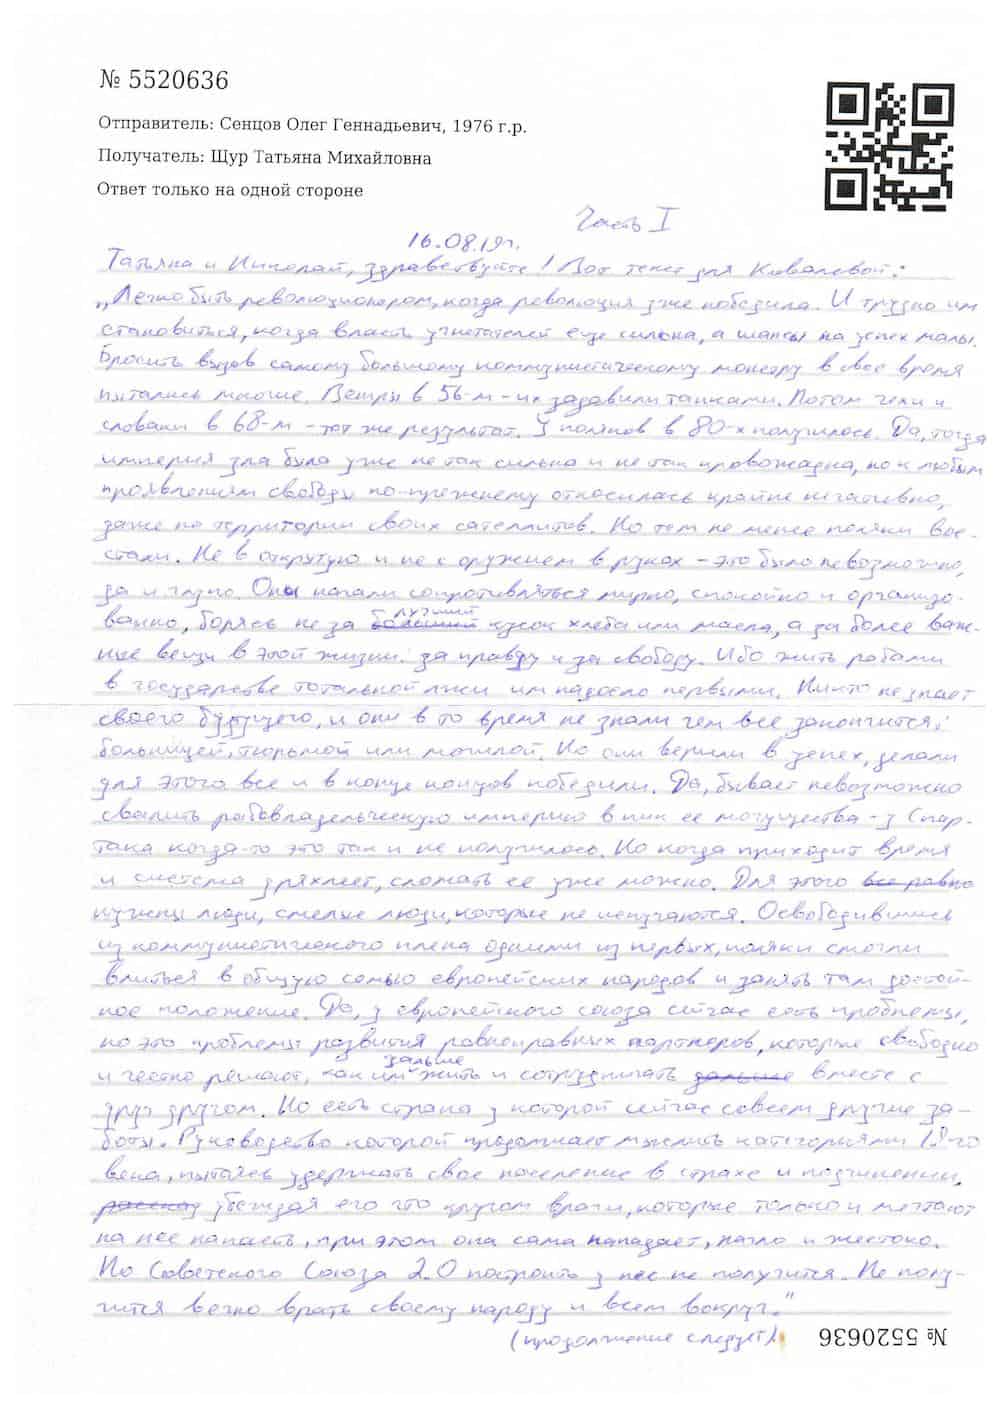 № 5520636
Отправитель: Сенцов Олег Геннадьевич, 1976 г.р.
Получатель: Щур Татьяна Михайловна
Ответ только на одной стороне
Часть I
16.08.19г.
Татьяна и Николай, здравствуйте! Вот текст для Ковалевой:
„Легко быть революционером, когда революция уже победила. И трудно им
становиться, когда власть угнетателей еще сильна, а шансы на успех малы.
Бросить вызов самому большому коммунистическому монстру в свое время
пытались многие. Венгры в 56-м – их задавили танками. Потом чехи и
словаки в 68-м – тот же результат. У поляков в 80-х получилось. Да, тогда
империя зла была уже не так сильна и не так кровожадна, но к любым
проявлениям свободы по-прежнему относилась крайне негативно,
даже на территории своих сателлитов. Но тем не менее поляки вос-
стали. Не в открытую и не с оружием в руках – это было невозможно,
да и глупо. Они начали сопротивляться мирно, спокойно и организо-
ванно, борясь не за больший лучший кусок хлеба или масла, а за более важ-
ные вещи в этой жизни: за правду и за свободу. Ибо жить рабами
в государстве тотальной лжи им надоело первыми. Никто не знает
своего будущего, и они в то время не знали чем все закончится:
больницей, тюрьмой или могилой. Но они верили в успех, делали
для этого все и в конце концов победили. Да, бывает невозможно
свалить рабовладельческую империю в пик ее могущества – у Спар-
така когда-то это так и не получилось. Но когда приходит время
и система дряхлеет, сломать ее уже можно. Для этого все равно
нужны люди, смелые люди, которые не испугаются. Освободившись
из коммунистического плена одними из первых, поляки смогли
влиться в общую семью европейских народов и занять там достой-
ное положение. Да, у европейского союза сейчас есть проблемы,
но это проблемы развития равноправных партнеров, которые свободно
и честно решают, как им дальше жить и сотрудничать дальше вместе с
друг другом. Но есть страна у которой сейчас совсем другие за-
боты. Руководство которой продолжает мыслить категориями 19-го
века, пытаясь удержать свое население в страхе и подчинении,
убеждая его что кругом враги, которые только и мечтают
на нее напасть, при этом она сама нападает, нагло и жестоко.
Но Советского Союза 2.0 построить у нее не получится. Не полу-
чится вечно врать своему народу и всем вокруг."
(продолжение следует)
№ 5520636